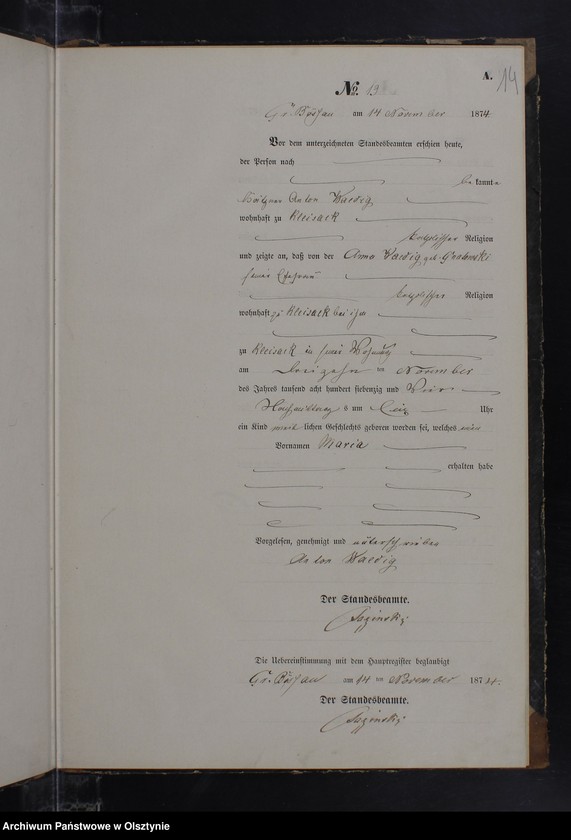 A.
14
№ 13
Gr. Bößau am 14 November 1874
Vor dem unterzeichneten Standesbeamten erschien heute,
der Person nach
be kannt
Anton Waedig
wohnhaft zu Kleisack
katholischer Religion
und zeigte an, daß von der Anna Waedig geb. Grabowski
seiner Ehefrau
katholischer Religion
wohnhaft zu Kleisack bei ihm
zu Kleisack in seiner Wohnung
am Dreizehn ten November
des Jahres tausend acht hundert siebenzig und Vier
Nachmittag s um Ein Uhr
ein Kind weib lichen Geschlechts geboren worden sei, welches
Vornamen Maria
erhalten habe
Vorgelesen, genehmigt und unterschrieben
Anton Waedig
Der Standesbeamte.
Die Uebereinstimmung mit dem Hauptregister beglaubigt
Gr. Bößau am 14 ten November 1874.
Der Standesbeamte.
Archiwum Państwowe w Olsztynie